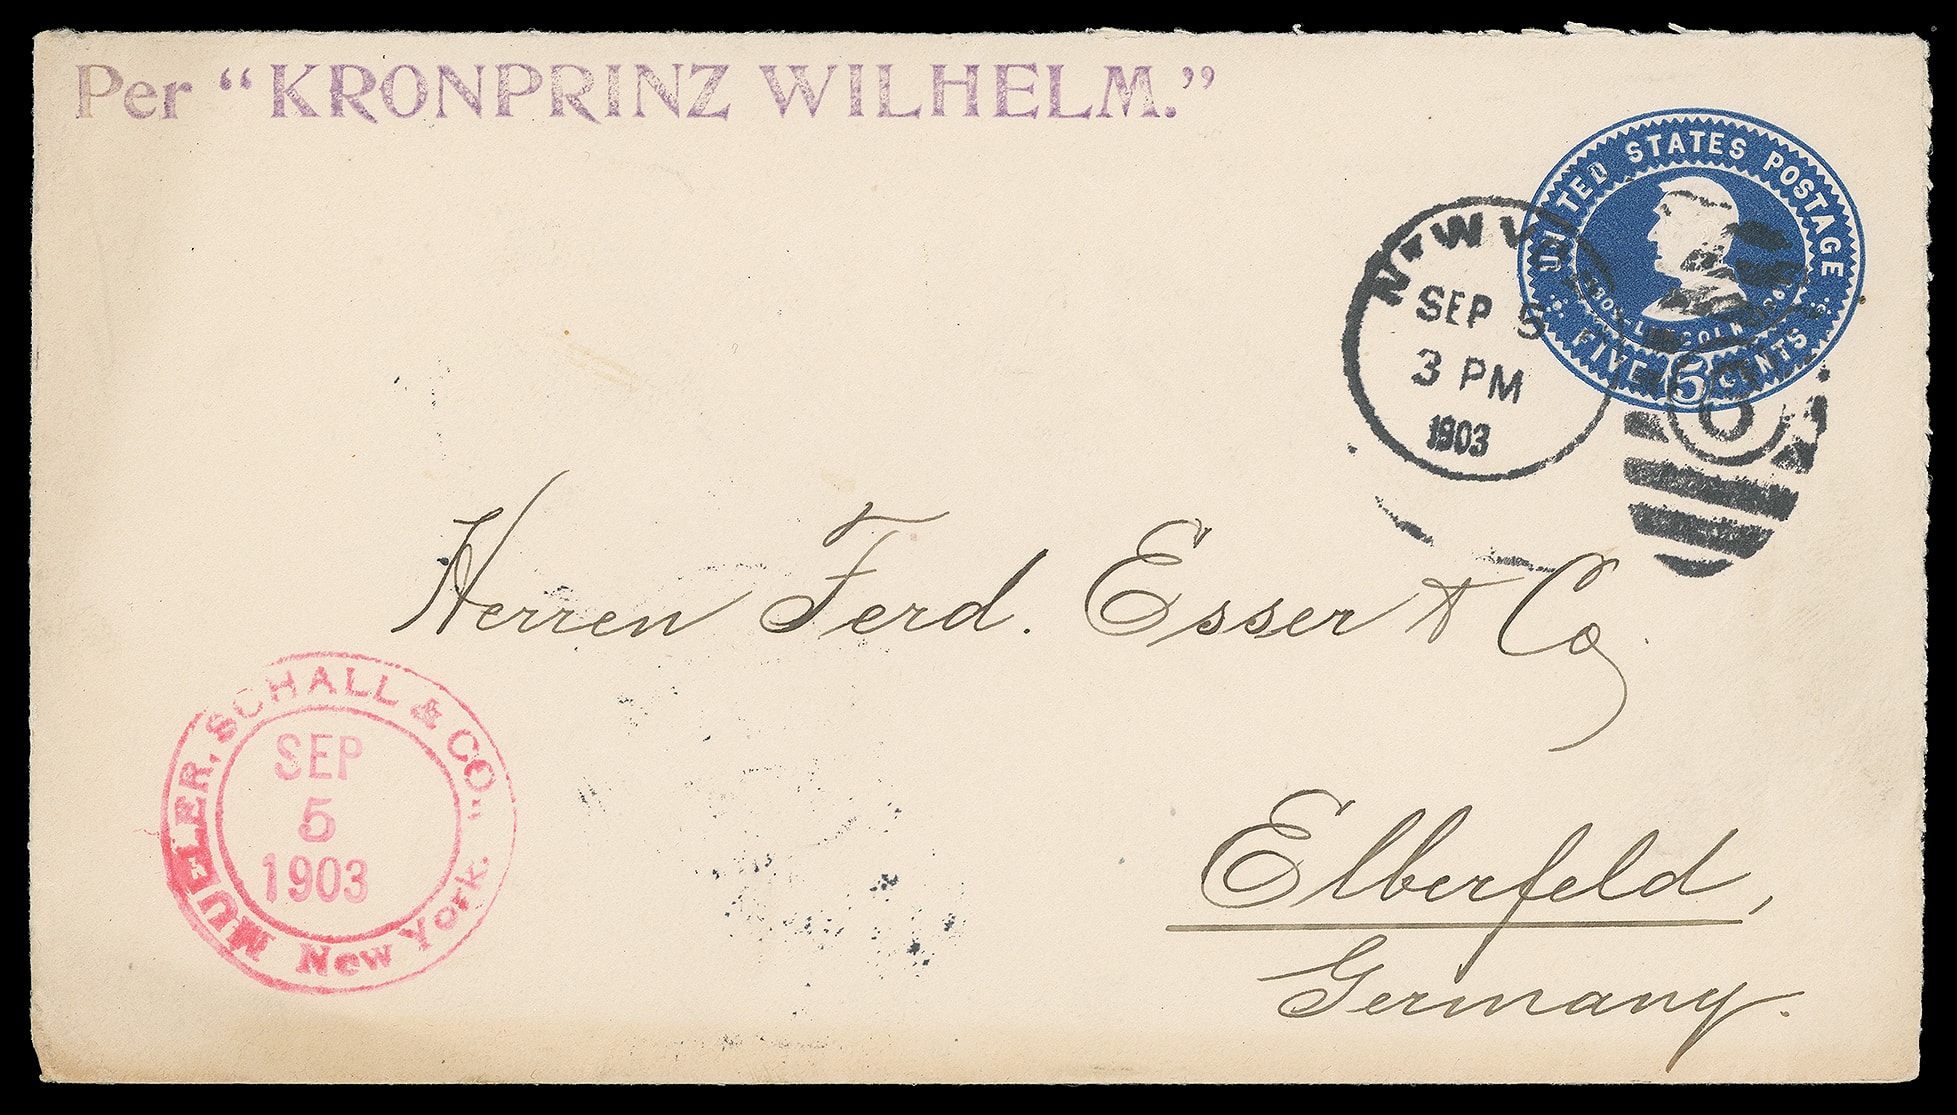 Per “KRONPRINZ WILHELM.”
UNITED STATES POSTAGE
FIVE 5 CENTS
NEW Y
SEP 5
3 PM
1903
O
Herren Ferd. Esser & Co.
MUELER, SCHALL & CO.,
SEP
5
1903
New York.
Elberfeld,
Germany.